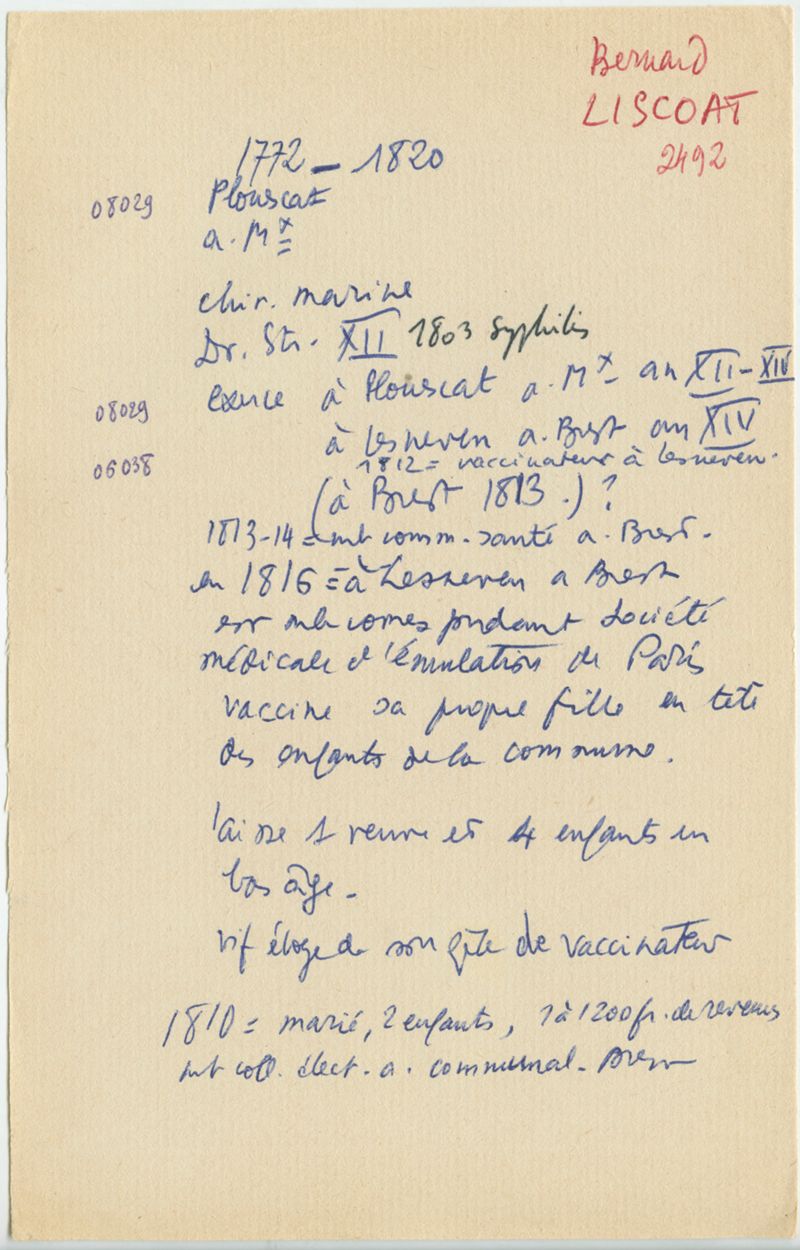 Bernard
LISCOAT
2492
1772 - 1820
08029 Plouscat
a. Mx
chir. marine
Dr. Str. XII 1803 Syphilis
08029 exerce à Plouscat a. Mx an XII-XIV
à Lesneven a. Brest an XIV
06038 1812 = vaccinateur à Lesneven.
(à Brest 1813.) ?
1813-14 = mb comm. santé a. Brest.
en 1816 = à Lesneven a Brest
est mb correspondant Société
médicale d'émulation de Paris
vaccine sa propre fille en tête
des enfants de la commune.
laisse 1 veuve et 4 enfants en
bas âge.
vif éloge de son zèle de vaccinateur
1810 = marié, 2 enfants, 1 à 1200 fr. de revenus
mb coll. élect. a. communal. Brest